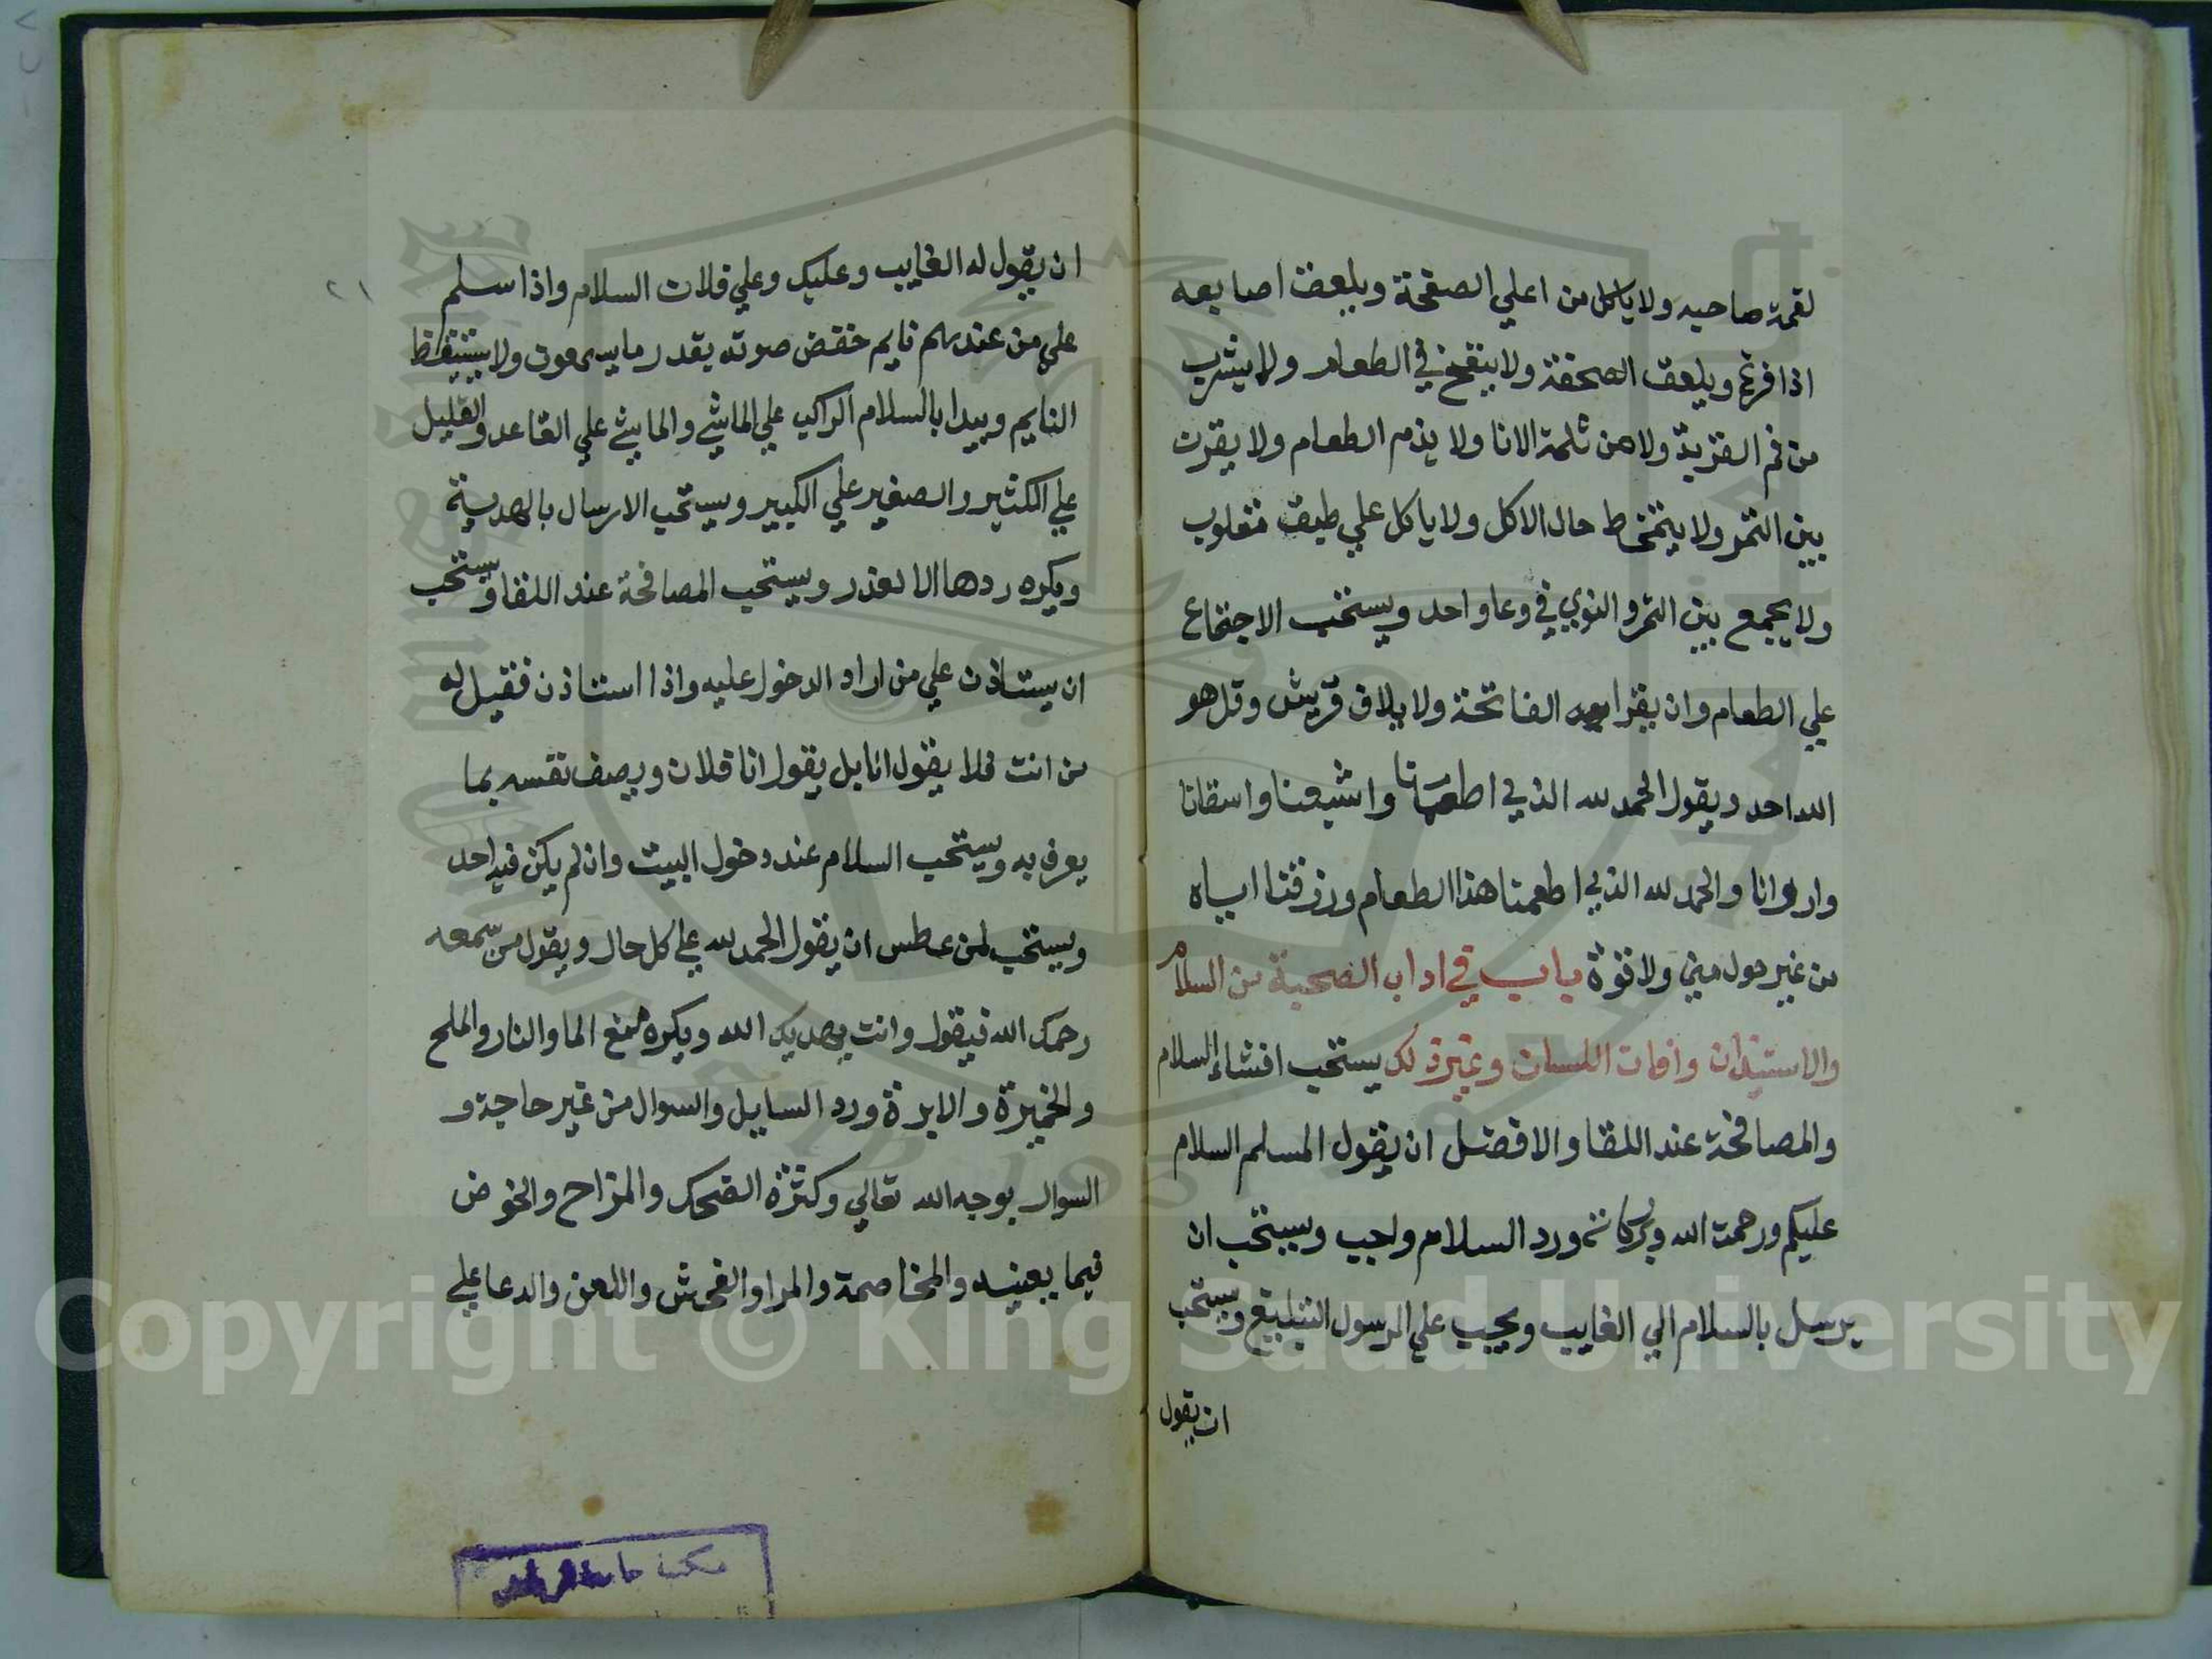 لقمة صاحبه ولا ياكل من اعلي الصفحة ويلعق اصابعه
اذا فرغ ويلعق الصحفة ولا ينفخ في الطعام ولا يشرب
من فم القربة ولا من ثلمة الانا ولا يذم الطعام ولا يقرن
بين التمر ولا يتمخط حال الاكل ولا ياكل علي طبق مقلوب
ولا يجمع بين التمر والنوي في وعا واحد ويستحب الاجتماع
علي الطعام وان يقرا بعده الفاتحة ولايلاف قريش وقل هو
الله احد ويقول الحمد لله الذي اطعمنا واشبعنا واسقانا
واروانا والحمد لله الذي اطعمنا هذا الطعام ورزقنا اياه
من غير حول مني ولا قوة باب في اداب الصحبة من السلام
والاستيذان وافات اللسان وغير ذلك يستحب افشاء السلام
والمصافحة عند اللقا والافضل ان يقول المسلم السلام
عليكم ورحمة الله وبركاته ورد السلام واجب ويستحب ان
يرسل بالسلام الي الغايب ويجب علي الرسول التبليغ ويستحب
ان يقول
٢١
ان يقول له الغايب وعليك وعلي فلان السلام واذا سلم
علي من عندهم نايم خفض صوته بقدر ما يسمعون ولا يستيقظ
النايم ويبدا بالسلام الراكب علي الماشي والماشي علي القاعد والقليل
علي الكثير والصغير علي الكبير ويستحب الارسال بالهدية
ويكره ردها الا لعذر ويستحب المصافحة عند اللقا ويستحب
ان يستاذن علي من اراد الدخول عليه واذا استاذن فقيل له
من انت فلا يقول انا بل يقول انا فلان ويصف نفسه بما
يعرف به ويستحب السلام عند دخول البيت وان لم يكن فيه احد
ويستحب لمن عطس ان يقول الحمد لله علي كل حال ويقول من سمعه
رحمك الله فيقول وانت يهديك الله ويكره منع الما والنار والملح
والخميرة والابرة ورد السايل والسوال من غير حاجة و
السوال بوجه الله تعالي وكثرة الضحك والمزاح والخوض
فيما يعنيه والمخاصمة والمرا والفحش واللعن والدعا علي
مكتبة جامعة الرياض
Copyright © King Saud University